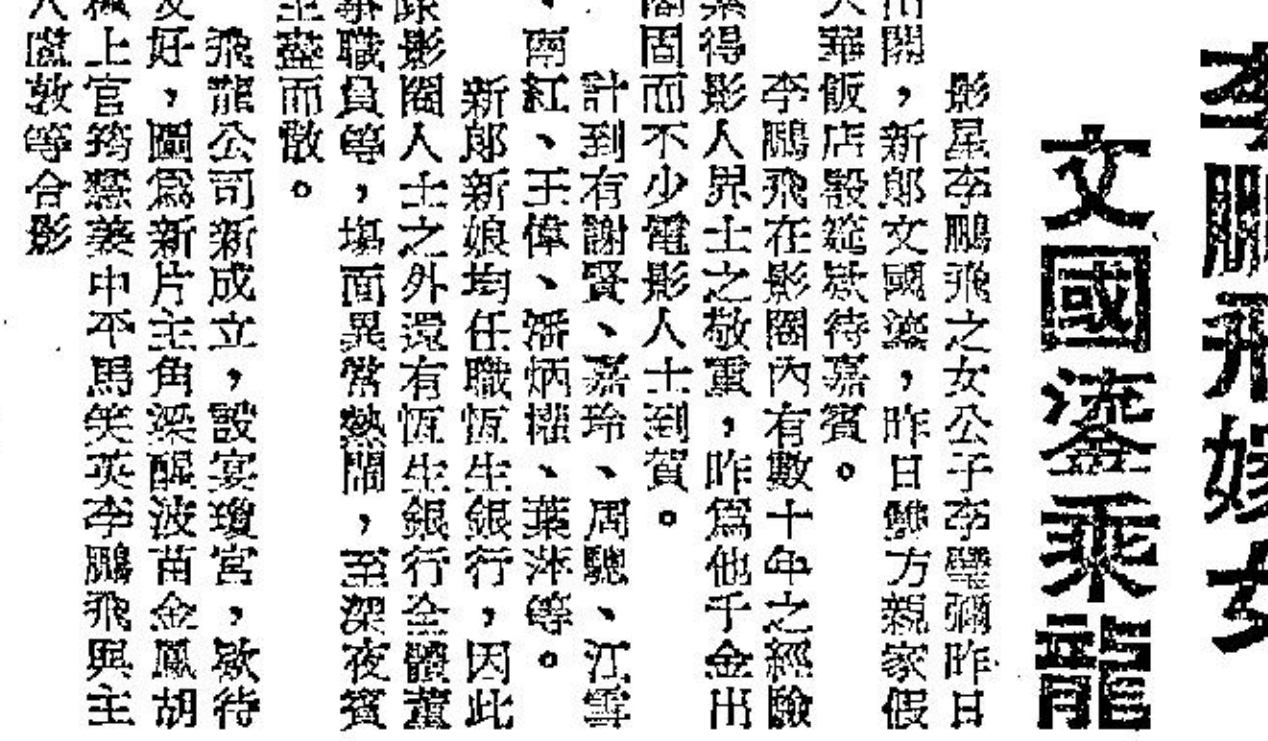 李鵬飛嫁女
文國鎏乘龍
影星李鵬飛之女公子李璧彌昨日
出閣,新郎文國鎏,昨日雙方親家假
大華飯店設筵欵待嘉賓。
李鵬飛在影圈內有數十年之經驗
得影人界士之敬重,昨爲他千金出
閣固而不少電影人士到賀。
計到有謝賢、嘉玲、周驄、江雪
、南紅、王偉、潘炳權、葉沐等。
新郎新娘均任職恆生銀行,因此
影圈人士之外還有恆生銀行全體董
事職員等,場面異常熱鬧,至深夜賓
至盡而散。
飛龍公司新成立,設宴瓊宮,欵待
友好,圖爲新片主角梁醒波苗金鳳胡
楓上官筠慧姜中不馬笑英李鵬飛與主
人盧敦等合影